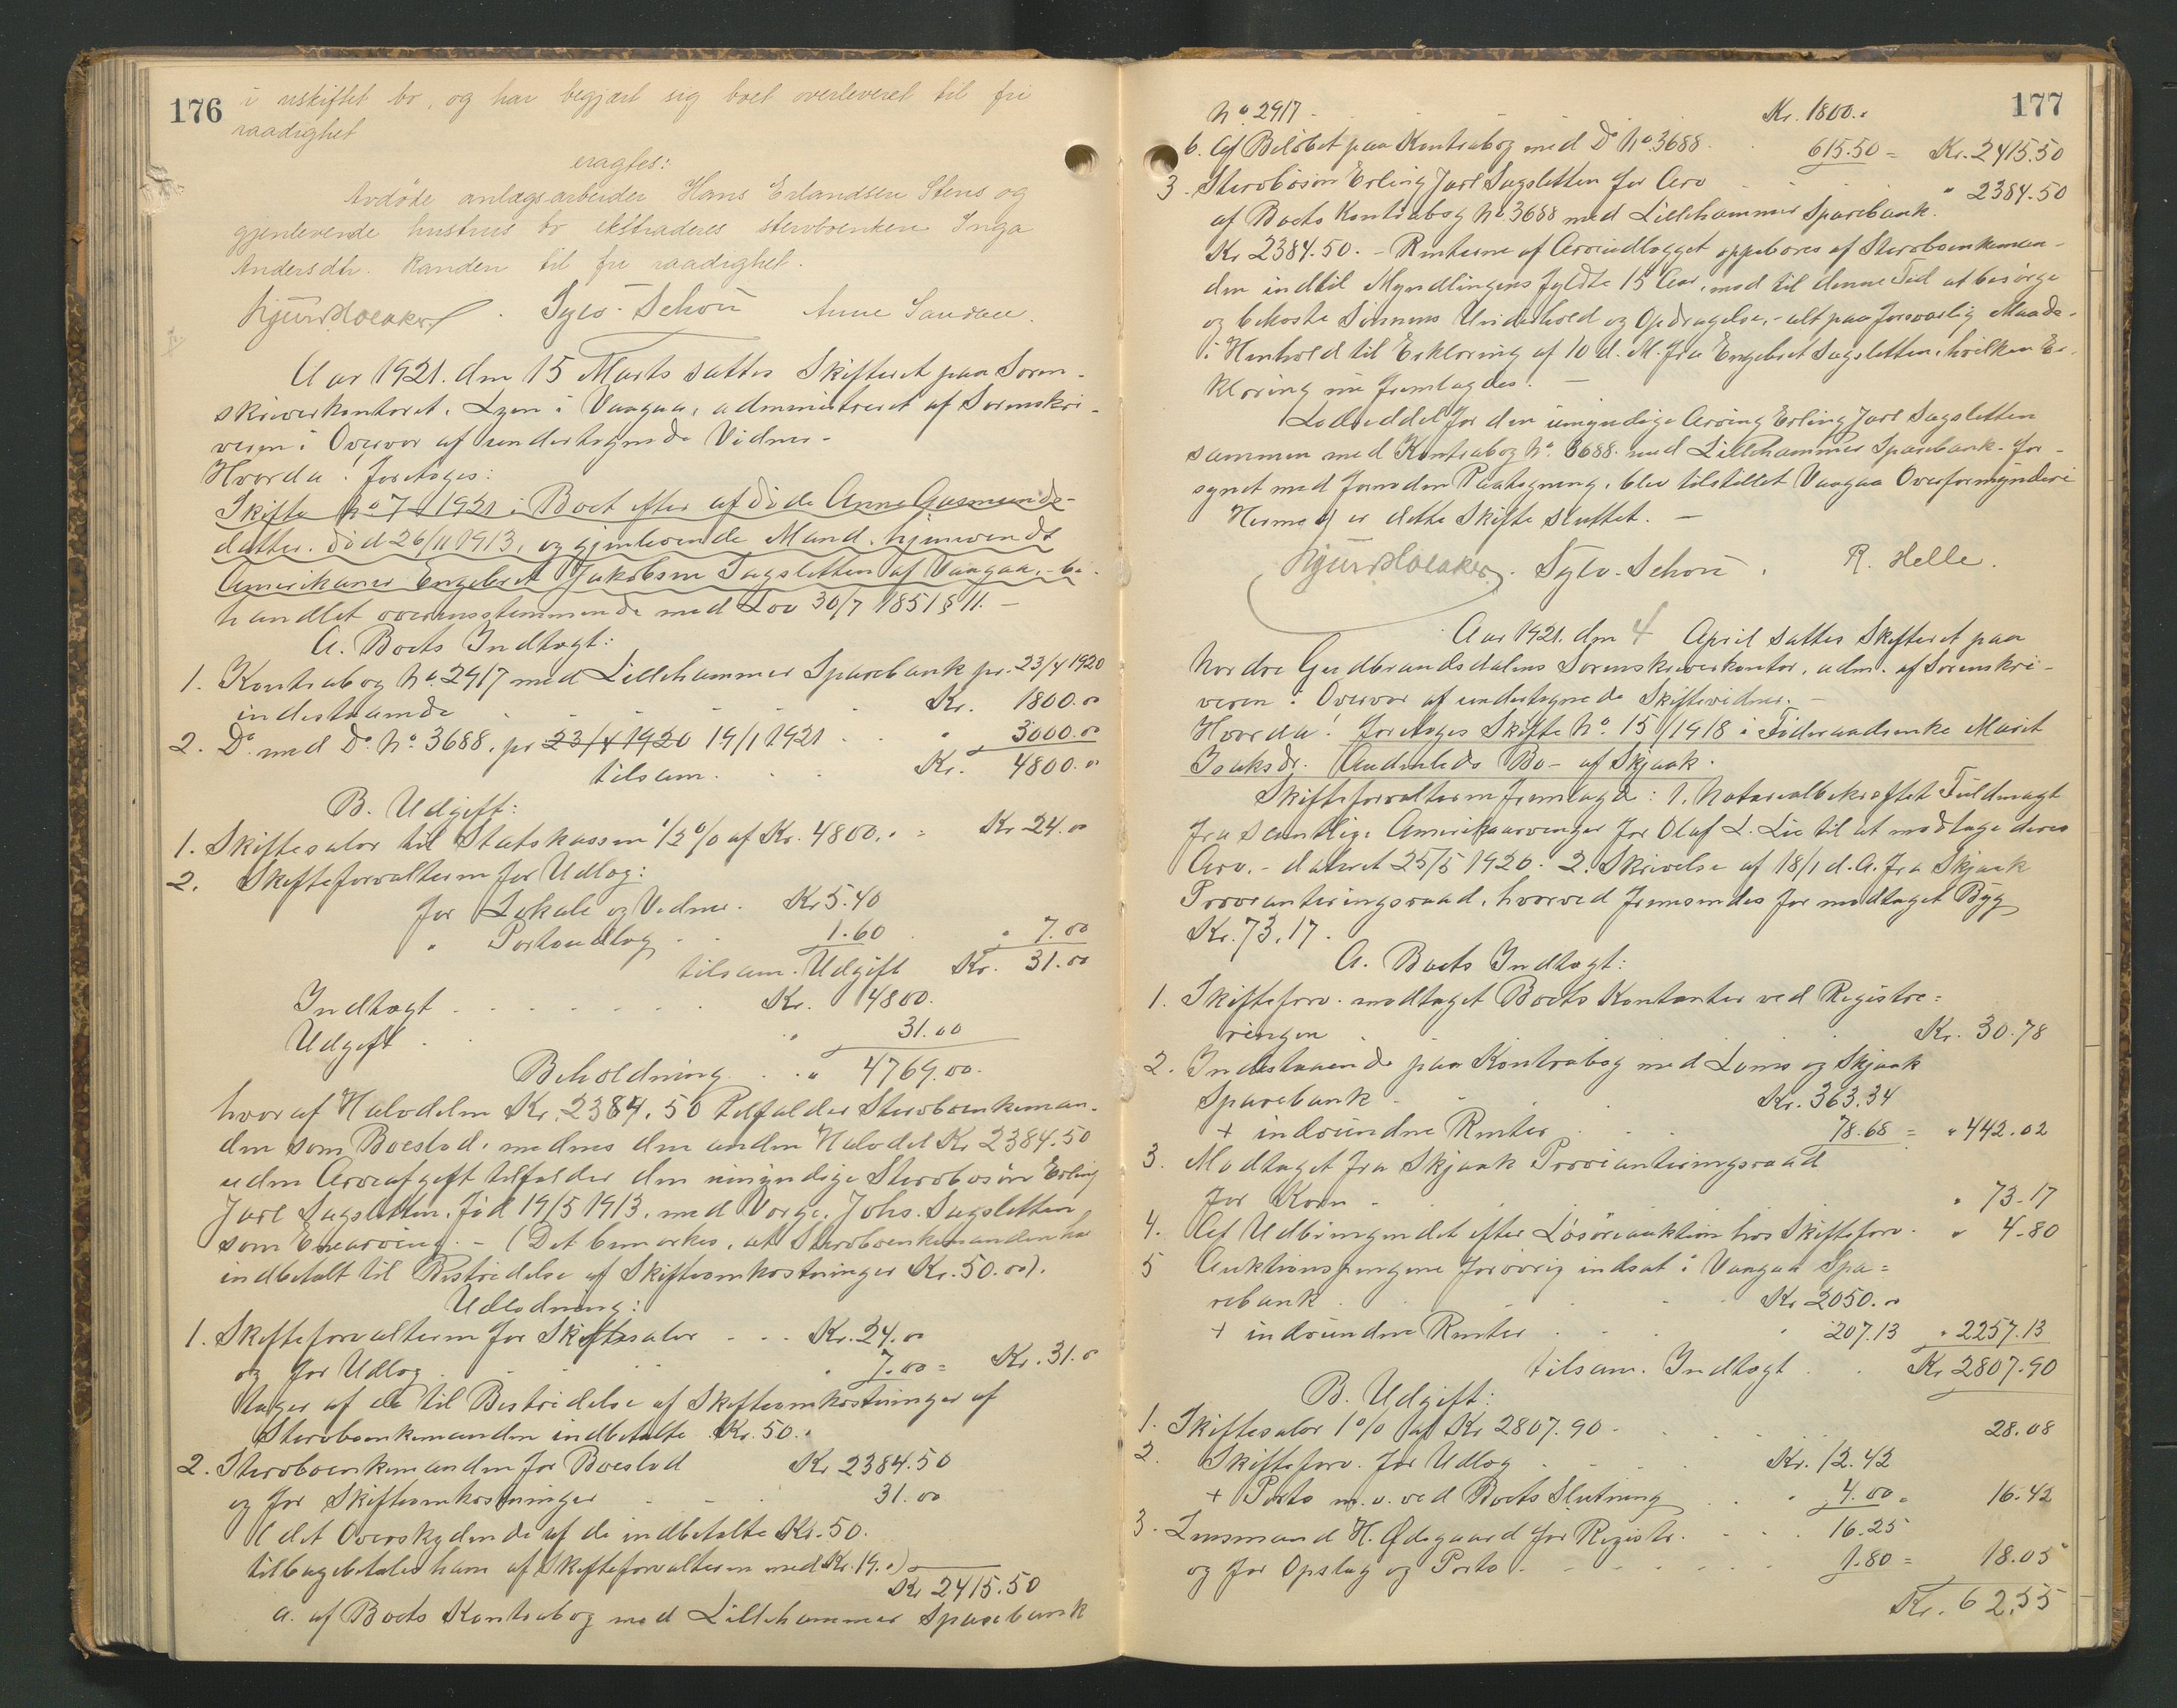 176
i uskiftet bo, og har begjært sig boet overleveret til fri
raadighet
eragtes:
Avdøde anlægsarbeider Hans Erlandsen Stens og
gjenlevende hustrus bo ekstraderes sterboenken Inga
Andersdtr. Randen til fri raadighet.
Sylv. Schou Anne Sandau.
Aar 1921. den 15 Marts sattes Skifteret paa Soren-
skriverkontoret, Lyen i Vaagaa, administreret af Sorenskri-
veren i Overvær af undertegnede Vidner.
Hvorda! foretoges:
Skifte No 7 / 1921 i Boet efter afdøde Anne Gusmunds-
datter, død 26/11 1913, og gjenlevende Mand, hjemvendt
Amerikaner Engebret Jakobsen Sagsletten af Vaagaa, - be-
handlet overensstemmende med Lov 30/7 1851 § 11. -
A. Boets Indtægt:
1. Kontrabog No. 2917 med Lillehammer Sparebank pr. 23/4 1920
indestaaende Kr. 1800.00
2. Do. med Do. No. 3688, pr 23/4 1920 19/1 1921 " 3000.00
tilsam. Kr. 4800.00
B. Udgift:
1. Skiftesalær til Statskassen 1/2 % af Kr. 4800. = Kr 24.00
2. Skifteforvalteren for Udlæg:
for Lokale og Vidner. Kr 5.40
" Portoudlæg 1.60 " 7.00
tilsam. Udgift Kr. 31.00
Indtægt Kr. 4800.
Udgift " 31.00
Beholdning " 4769.00.
hvoraf Halvdelen Kr. 2384.50 tilfalder Sterboenkeman-
den som Boeslod, medens den anden Halvdel Kr 2384.50
uden Arveafgift tilfalder den umyndige Sterbosøn Erling
Jarl Sagsletten, født 19/5 1913, med Værge, Johs. Sagsletten
som Enearving. - (Det bemærkes, at Sterboenkemanden har
indbetalt til Bestridelse af Skifteomkostninger Kr. 50.00).
Udlodning:
1. Skifteforvalteren for Skiftesalær Kr. 24.00
og for Udlæg " 7.00 = Kr. 31.00
tages af de til Bestridelse af Skifteomkostninger af
Sterboenkemanden indbetalte Kr. 50.
2. Sterboenkemanden for Boeslod Kr 2384.50
og for Skifteomkostninger 31.00
(det Overskydende af de indbetalte Kr. 50.
tilbagebetales ham af Skifteforvalteren med Kr. 19.)
Kr 2415.50
a. af Boets Kontrabog med Lillehammer Sparebank
177
No. 2917 Kr. 1800.
b. Af Beløbet paa Kontrabog med Do No. 3688 615.50 = Kr. 2415.50
3. Sterbosøn Erling Jarl Sagsletten for Arv " 2384.50
af Boets Kontrabog No. 3688 med Lillehammer Sparebank.
Kr 2384.50. - Renterne af Arveudlægget oppebæres af Sterboenkeman-
den indtil Myndlingens fyldte 15 Aar, mod til denne Tid at besørge
og bekoste Sønnens Underhold og Opdragelse, - alt paa forsvarlig Maade -
i Henhold til Erklæring af 10 d. M. fra Engebret Sagsletten, hvilken Er-
klæring nu fremlagdes. -
Lodseddel for den umyndige Arving Erling Jarl Sagsletten
sammen med Kontrabog No. 3688 med Lillehammer Sparebank - for-
synet med fornøden Paategning, blev tilstillet Vaagaa Overformynderi
Hermed er dette Skifte sluttet. -
Sylv. Schou. R. Helle.
Aar 1921. den 4 April sattes Skifteret paa
Nordre Gudbrandsdalens Sorenskriverkontor, adm. af Sorenskri-
veren i Overvær af undertegnede Skiftevidner. -
Hvorda! foretoges Skifte No. 15/1918 i Føderaadsenke Marit
Isaksdr. Andvileds Bo - af Skjaak.
Skifteforvalteren fremlagde: 1. Notarialbekræftet Fuldmagt
fra samtlige Amerikaarvinger for Olaf L. Lie til at modtage deres
Arv, - dateret 25/5 1920. 2. Skrivelse af 18/1 d. A. fra Skjaak
Provianteringsraad, hvorved fremsendes for modtaget Byg
Kr. 73.17.
A. Boets Indtægt:
1. Skifteforv. modtaget Boets Kontanter ved Registre=
ringen Kr. 30.78
2. Indestaaende paa Kontrabog med Loms og Skjaak
Sparebank Kr. 363.34
+ indvundne Renter 78.68 = " 442.02
3. Modtaget fra Skjaak Provianteringsraad
for Korn " 73.17
4. Af Udbringendet efter Løsøreauktion hos Skifteforv. " 4.80
5 Auktionspengene forøvrig indsat i Vaagaa Spa=
rebank Kr 2050.00
+ indvundne Renter " 207.13 " 2257.13
tilsam. Indtægt Kr 2807.90
B. Udgift:
1. Skiftesalær 1 % af Kr 2807.90 28.08
2. Skifteforv. for Udlæg Kr. 12.42
+ Porto m. v. ved Boets Slutning " 4.00 = 16.42
3. Lensmand H. Ødegaard for Registr. 16.25
og for Opslag og Porto 1.80 = 18.05
Kr. 62.55